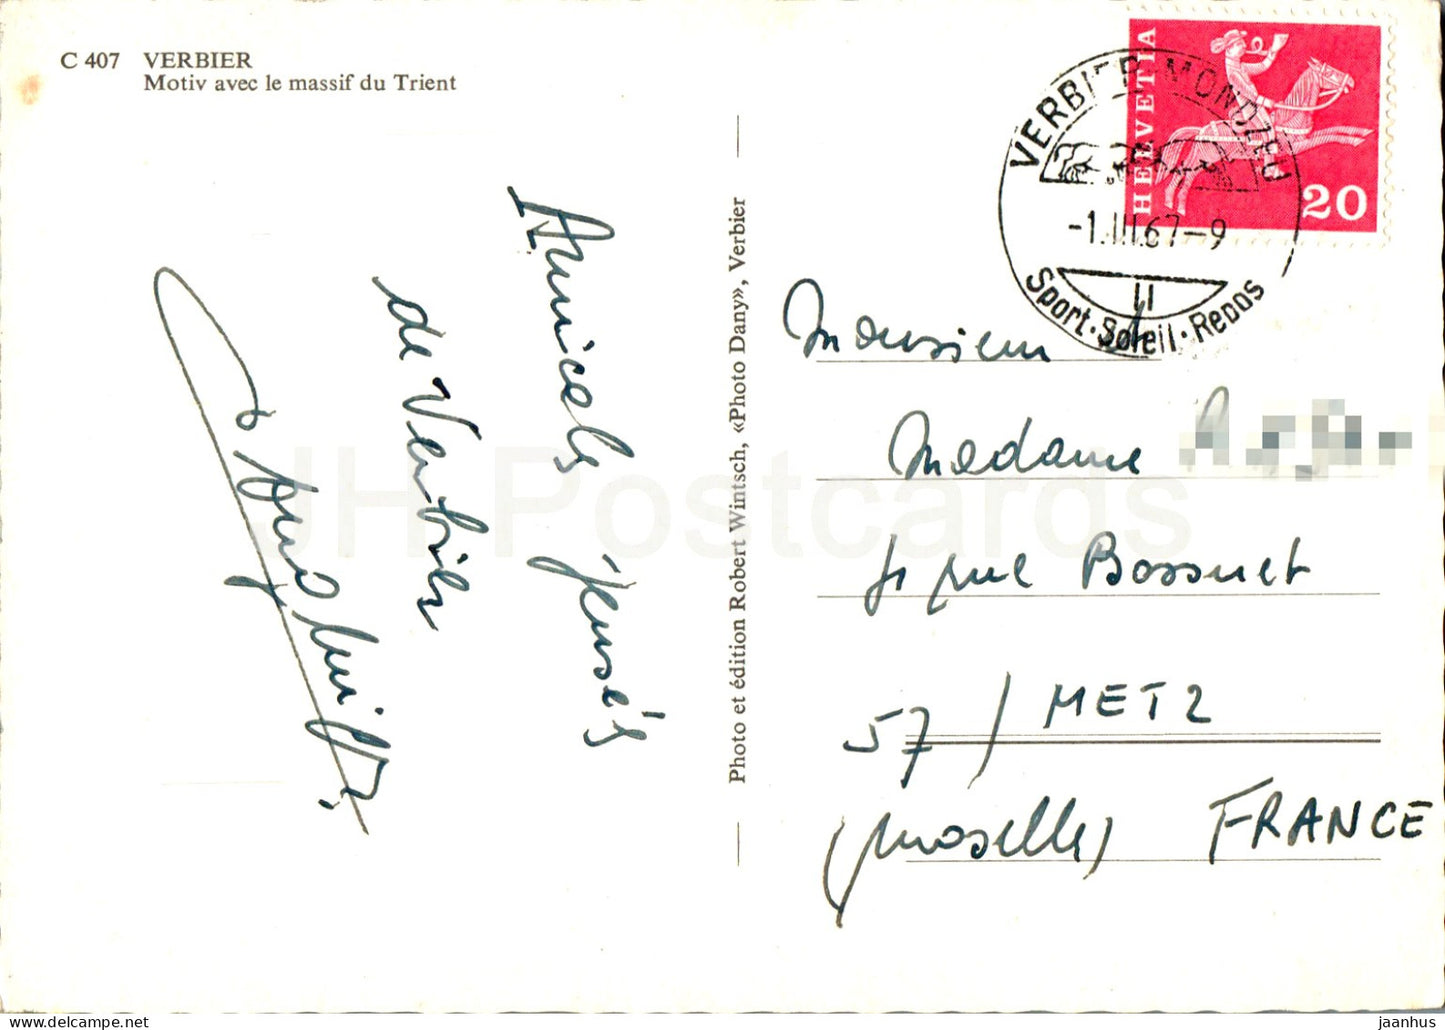 C 407 VERBIER
Motiv avec le massif du Trient
Amicales pensées
de Verbier
Photo et édition Robert Wintsch, «Photo Dany», Verbier
HELVETIA
20
VERBIER MONDZEU
-1.III.67-9
Sport·Soleil·Repos
Monsieur
Madame
rue Bossuet
57/ METZ
(Moselle) FRANCE
JH Postcards
https://delcampe.net
jaanhus